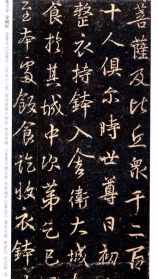 菩薩及比丘衆千二百
十人俱尔時世尊日初
整衣持鉢入舍衛大城
食於其城中次第乞已
至本處飯食訖收衣鉢